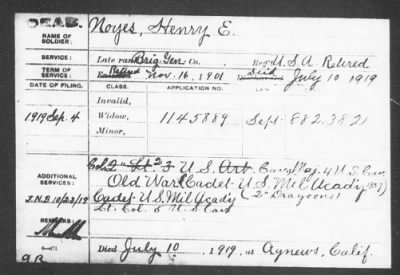 DEAB. Noyes, Henry E.
NAME OF SOLDIER:
SERVICE: Late rank Brig. Gen. Co. Reg't U.S.A. Retired
TERM OF SERVICE: Retired Nov. 16, 1901 Died July 10 1919
DATE OF FILING. CLASS. APPLICATION NO.
Invalid,
1919 Sep. 4 Widow, 1145889 Sept. 882.382
Minor,
Col. 2" Lt. 2 & 3 U.S. Art. Cav. Maj. 4 U.S. Cav.
ADDITIONAL SERVICES: Old War Cadet U.S. Mil. Acady
J.N.B 10/23/19 Cadet U.S. Mil Acady (2" Dragoons)
REMARKS: Lt. Col. 5 U.S. Cav
Died July 10, 1919, at Agnews, Calif.